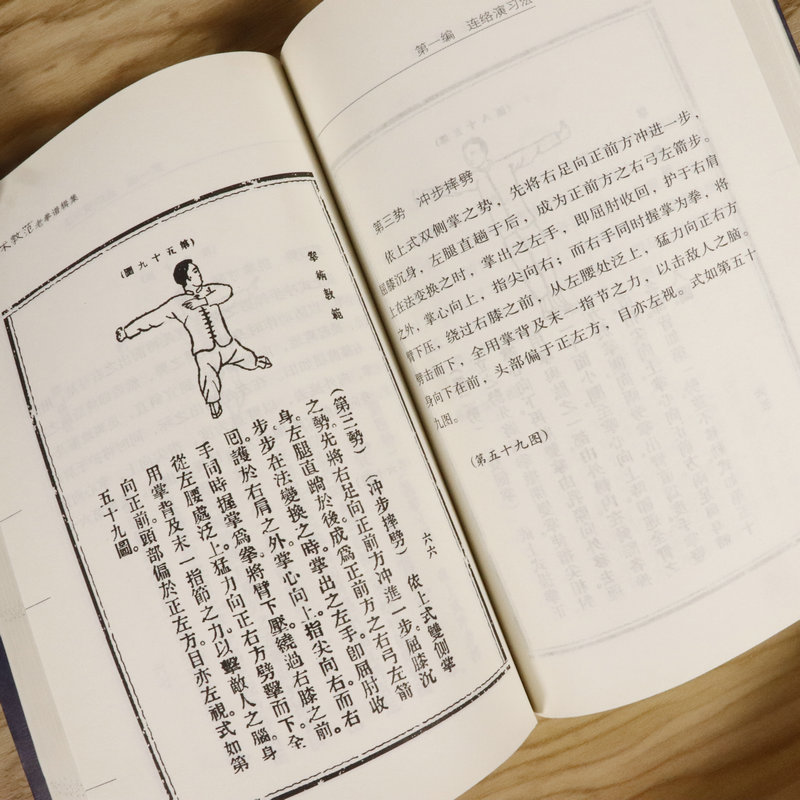 术教范 老拳谱辑集
拳術教範
（第五十九圖）
六六
（第三勢）（冲步摔劈）依上式雙側掌
之勢。先將右足向正前方冲進一步。屈膝沉
身。左腿直蹚於後。成爲正前方之右弓左箭
步。步在法變換之時。掌出之左手。即屈肘收
回。護於右肩之外。掌心向上。指尖向右。而右
手同時握掌爲拳。將臂下壓。繞過右膝之前。
從左腰處泛上。猛力向正右方劈擊而下。全
用掌背及末一指節之力。以擊敵人之腦。身
向正前。頭部偏於正左方。目亦左視。式如第
五十九圖。
第一编 连络演习法
第三势 冲步摔劈
依上式双侧掌之势，先将右足向正前方冲进一步，
屈膝沉身，左腿直趟于后，成为正前方之右弓左箭步。
上在法变换之时，掌出之左手，即屈肘收回，护于右肩
之外，掌心向上，指尖向右；而右手同时握掌为拳，将
臂下压，绕过右膝之前，从左腰处泛上，猛力向正右方
劈击而下，全用掌背及末一指节之力，以击敌人之脑。
身向下在前，头部偏于正左方，目亦左视。式如第五十
九图。
（第五十九图）